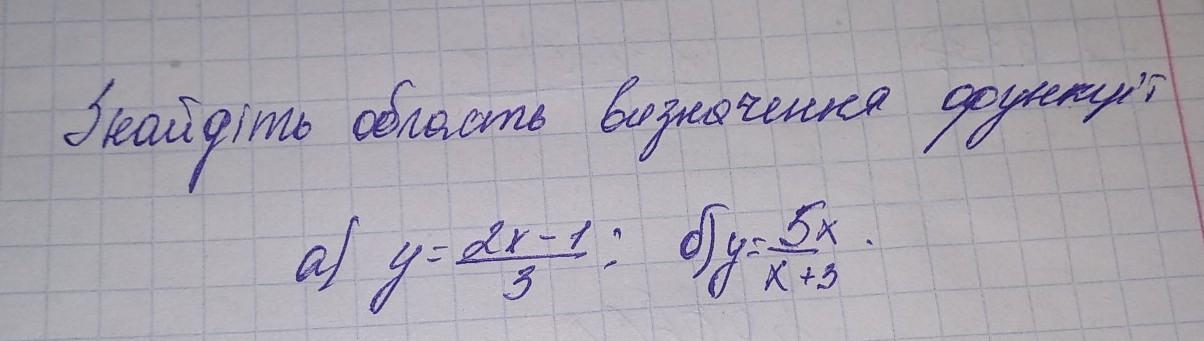 Знайдіть область визначення функції
а) y = \frac{2x-1}{3}; б) y = \frac{5x}{x+3}.